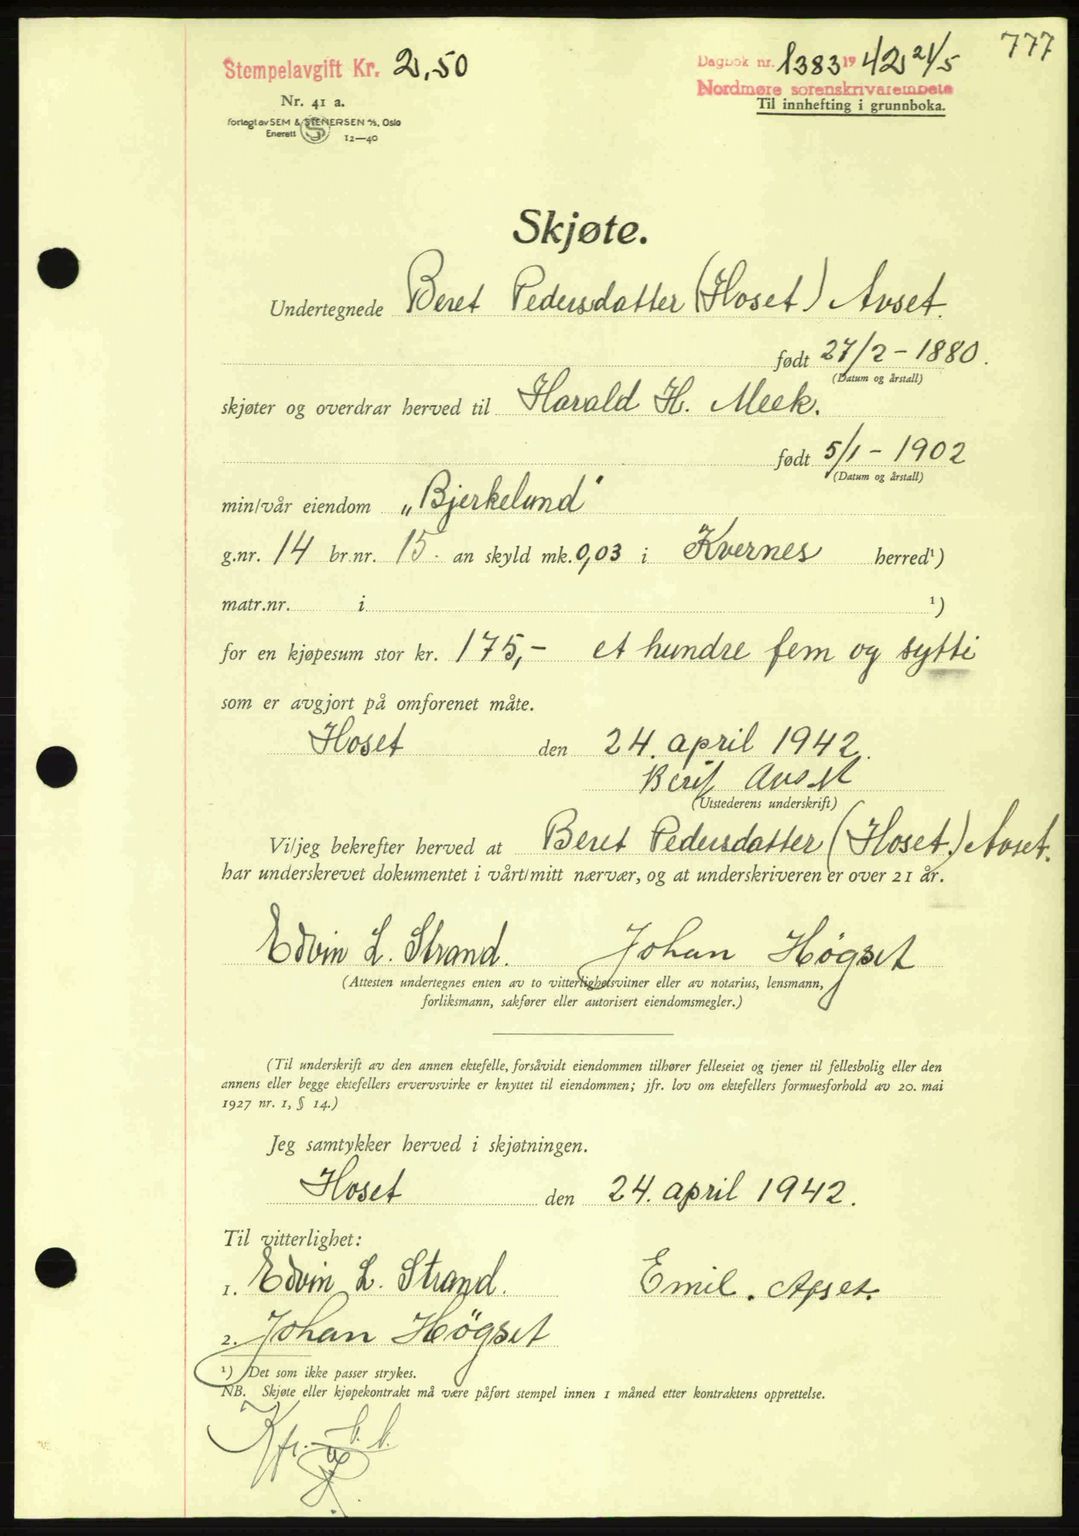 777
Stempelavgift Kr. 2,50
Dagbok nr. 1383 1942 21/5
Nordmøre sorenskrivarembete
Til innhefting i grunnboka.
Nr. 41 a.
Forlagt av SEM & STENERSEN A/S, Oslo
Enerett
S
12—40
Skjøte.
Undertegnede Beret Pedersdatter (Hoset) Avset.
født 27/2 - 1880.
(Datum og årstall)
skjøter og overdrar herved til Harald H. Meek.
født 5/1 - 1902
(Datum og årstall)
min/vår eiendom „Bjerkelund"
g.nr. 14 br.nr. 15. an skyld mk. 0,03 i Kvernes herred¹)
matr.nr. i ¹)
for en kjøpesum stor kr. 175,- et hundre fem og sytti
som er avgjort på omforenet måte.
Hoset den 24. april 1942.
Berit Avset
(Utstederens underskrift)
Vi/jeg bekrefter herved at Beret Pedersdatter (Hoset.) Avset.
har underskrevet dokumentet i vårt/mitt nærvær, og at underskriveren er over 21 år.
Edvin L. Strand. Johan Högset
(Attesten undertegnes enten av to vitterlighetsvitner eller av notarius, lensmann,
forliksmann, sakfører eller autorisert eiendomsmegler.)
(Til underskrift av den annen ektefelle, forsåvidt eiendommen tilhører felleseiet og tjener til fellesbolig eller den
annens eller begge ektefellers ervervsvirke er knyttet til eiendommen; jfr. lov om ektefellers formuesforhold av 20. mai
1927 nr. 1, § 14.)
Jeg samtykker herved i skjøtningen.
Hoset den 24. april 1942.
Til vitterlighet:
1. Edvin L. Strand. Emil. Afset.
2. Johan Högset
¹) Det som ikke passer strykes.
NB. Skjøte eller kjøpekontrakt må være påført stempel innen 1 måned etter kontraktens opprettelse.